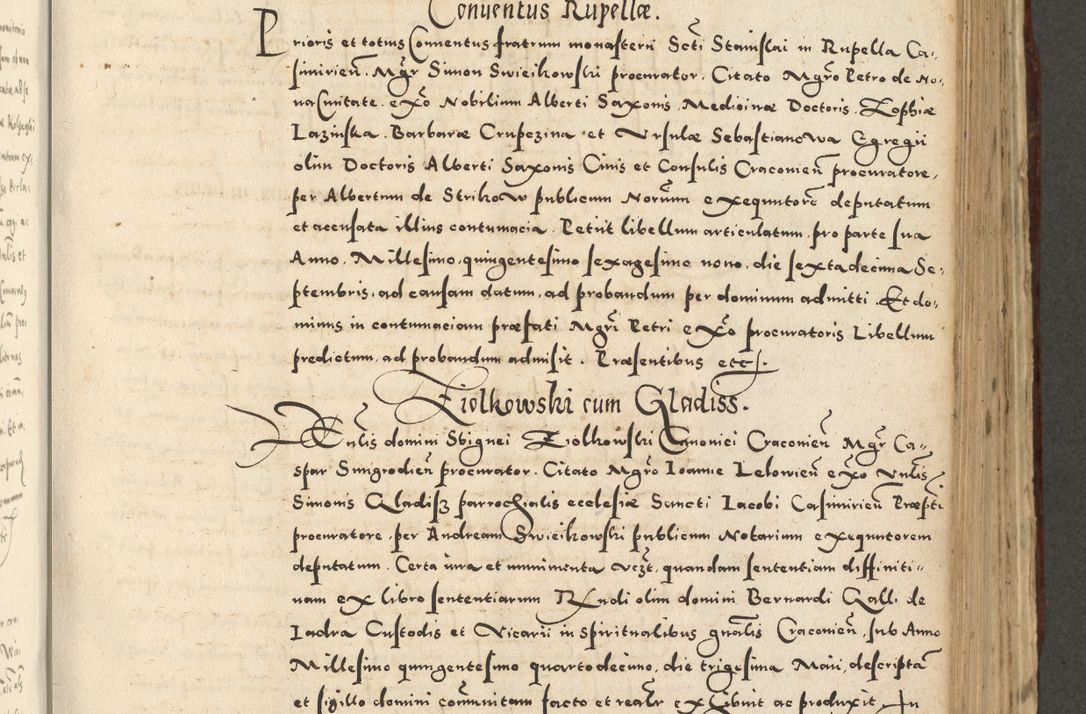 Conuentus Rupellæ.
Prioris et totius Conuentus fratrum monasterii Scti Stanislai in Rupella Ca-
simirien̄. Mgr Simon Swieikowski procurator. Citato Mgro Petro de No-
ua Ciuitate. ex̄o Nobilium Alberti Saxonis, Medicinæ Doctoris. Zophiæ
Lazinska. Barbaræ Crupezina et Vrsulæ Sebastianowa Egregii
olim Doctoris Alberti Saxonis Ciuis et Consulis Cracouien̄ procuratore,
per Albertum de Strikow publicum Norium exequutorē deputatum
et accusata illius contumacia. Petiit libellum articulatum, pro parte sua
Anno. Millesimo. quingentesimo sexagesimo nono. die sexta decima Se-
ptembris. ad causam datum, ad probandum per dominum admitti. Et do-
minus in contumaciam præfati Mgri Petri ex̄o procuratoris Libellum
predictum, ad probandum admisit. Præsentibus etc.
Ziolkowski cum Gladiss.
Vn̄lis domini Sbignei Ziolkowski Canonici Cracouien̄ Mgr Ca-
spar procurator. Citato Mgro Ioanne Lelowien̄ ex̄o Vn̄lis
Simonis Gladisz parrochialis ecclesiæ Sancti Iacobi Casimirien̄ Præpti
procuratore, per Andream Swieikowski publicum Notarium exequutorem
deputatum. Certa iura et munimenta vczt. quandam sententiam diffiniti-
uam ex libro sententiarum Rndi olim domini Bernardi Gall. de
Iadra Custodis et Vicarii in spiritualibus gn̄alis Cracouien̄. sub Anno
Millesimo quingentesimo quarto decimo, die trigesima Maii, descriptā
et sigillo domini com̄unitam facto et realr exhibuit ac produxit. In